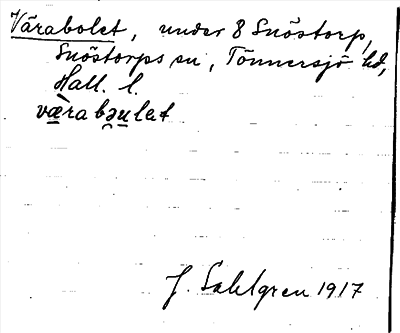 Värabolet, under 8 Snöstorp,
Snöstorps sn, Tönnersjö hd,
Hall. l.
væ̀rabəu̯let
J. Sahlgren 1917